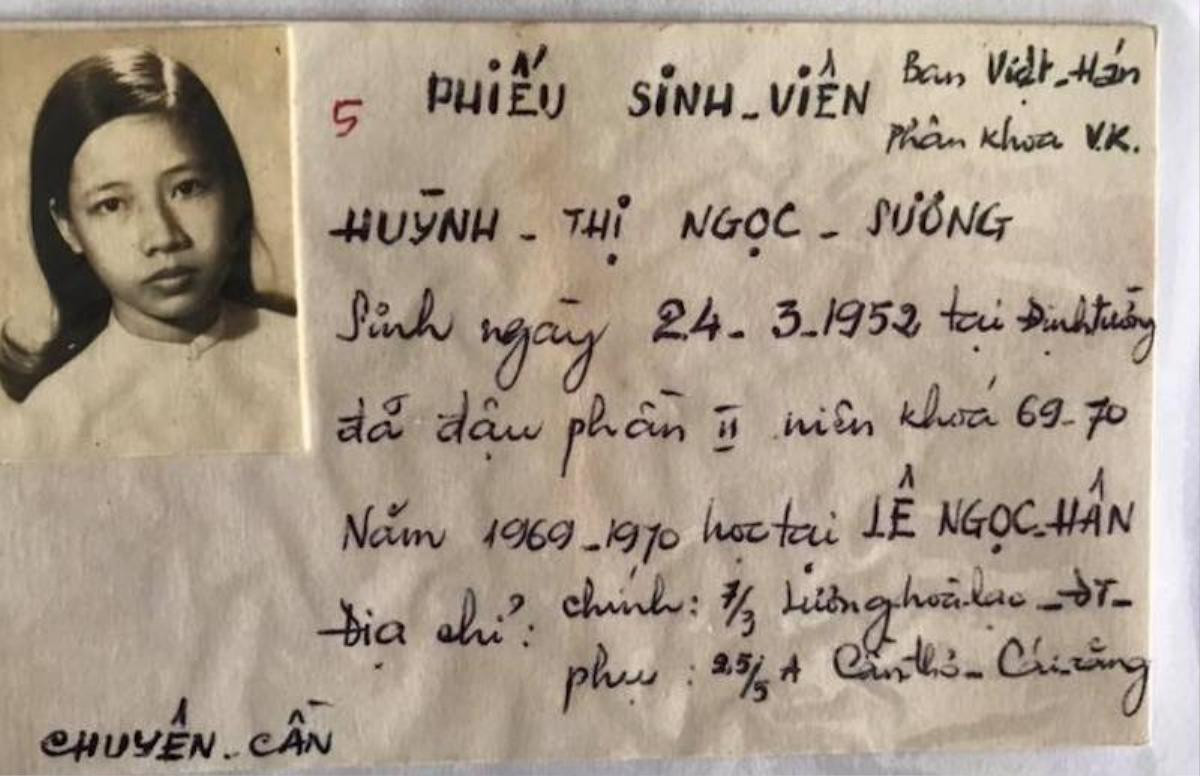 5 PHIẾU SINH-VIÊN
Ban Việt-Hán
Phân khoa V.K.
HUỲNH - THỊ NGỌC - SƯƠNG
Sinh ngày 24 - 3-1952 tại Định tường
đã đậu phần II niên khoá 69-70
Năm 1969-1970 học tại LÊ NGỌC-HÂN
Địa chỉ: chính: 7/3 Lương hoà lạc - ĐT-
phụ: 25/5 A Cần thơ - Cái răng
CHUYÊN-CẦN